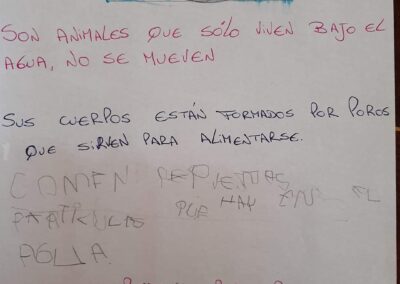 SON ANIMALES QUE SÓLO VIVEN BAJO EL
AGUA, NO SE MUEVEN
SUS CUERPOS ESTÁN FORMADOS POR POROS
QUE SIRVEN PARA ALIMENTARSE.
COMEN
QUE HAY EN EL
AGUA